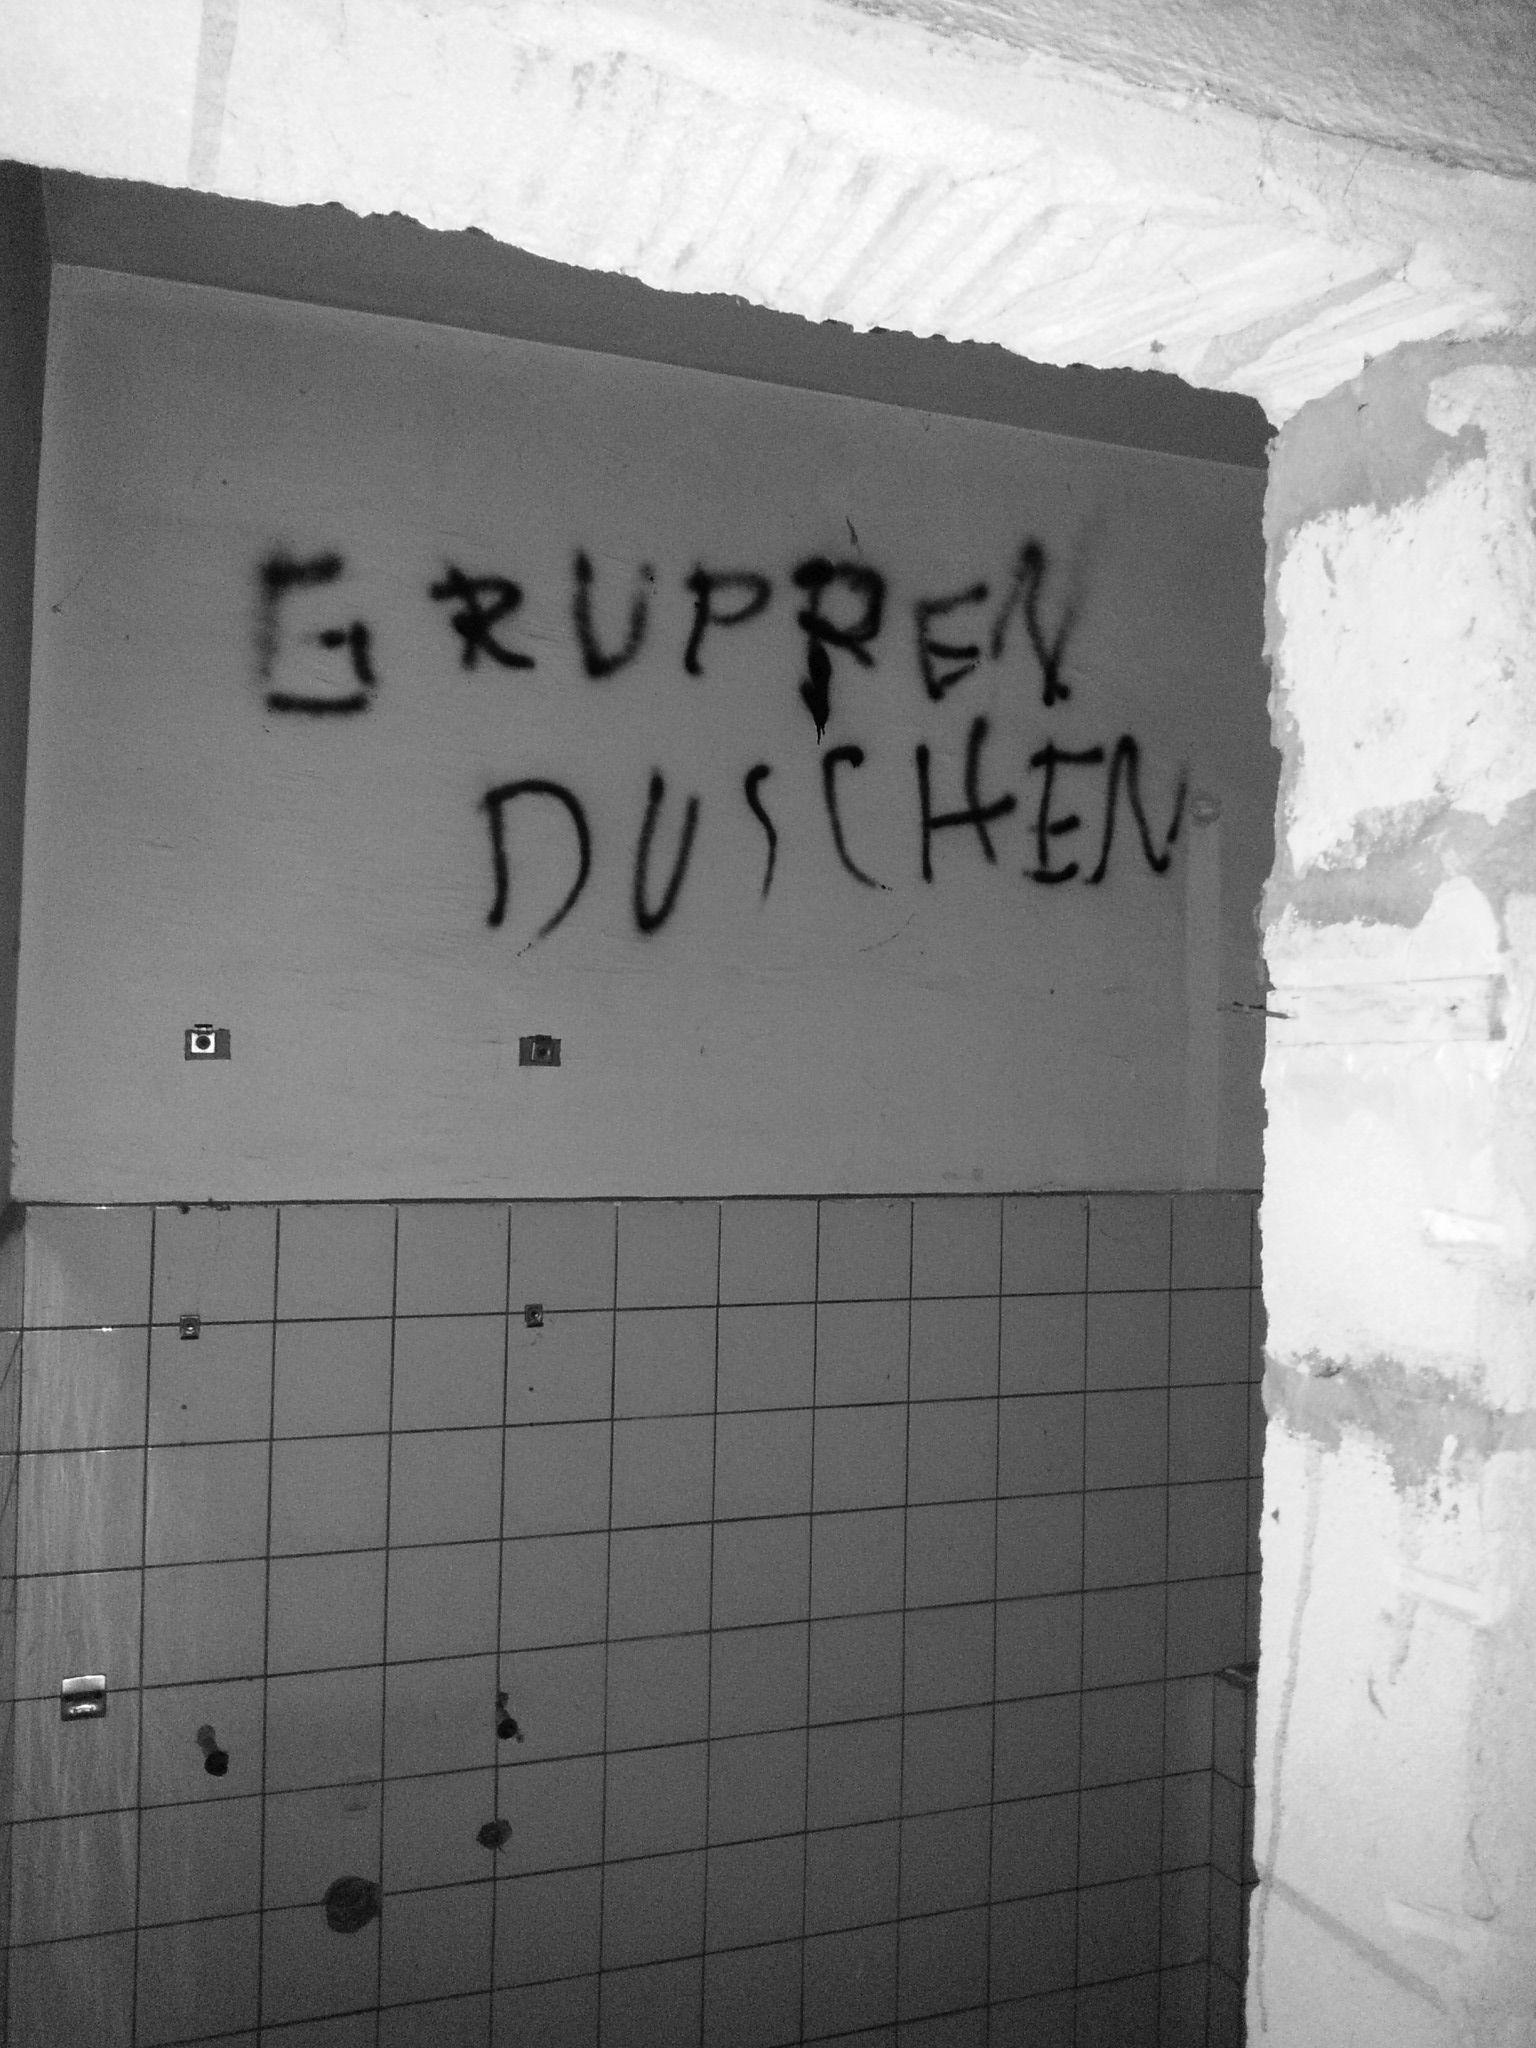 GRUPPEN
DUSCHEN